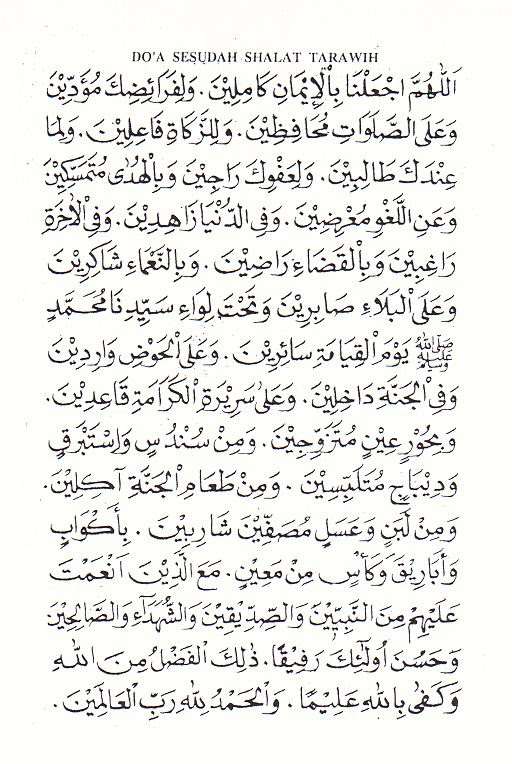 DO'A SESUDAH SHALAT TARAWIH
اَللّٰهُمَّ اجْعَلْنَا بِاْلإِيْمَانِ كَامِلِيْنَ. وَلِفَرَائِضِكَ مُؤَدِّيْنَ
وَعَلَى الصَّلَوَاتِ مُحَافِظِيْنَ. وَلِلزَّكَاةِ فَاعِلِيْنَ. وَلِمَا
عِنْدَكَ طَالِبِيْنَ. وَلِعَفْوِكَ رَاجِيْنَ وَبِالْهُدٰى مُتَمَسِّكِيْنَ
وَعَنِ اللَّغْوِ مُعْرِضِيْنَ. وَفِى الدُّنْيَا زَاهِدِيْنَ. وَفِى اْلآخِرَةِ
رَاغِبِيْنَ وَبِالْقَضَاءِ رَاضِيْنَ. وَبِالنَّعْمَاءِ شَاكِرِيْنَ
وَعَلَى الْبَلَاءِ صَابِرِيْنَ وَتَحْتَ لِوَاءِ سَيِّدِنَا مُحَمَّدٍ
ﷺ يَوْمَ الْقِيَامَةِ سَائِرِيْنَ. وَعَلَى الْحَوْضِ وَارِدِيْنَ
وَفِى الْجَنَّةِ دَاخِلِيْنَ. وَعَلٰى سَرِيْرَةِ الْكَرَامَةِ قَاعِدِيْنَ.
وَبِحُوْرٍ عِيْنٍ مُتَزَوِّجِيْنَ. وَمِنْ سُنْدُسٍ وَاِسْتَبْرَقٍ
وَدِيْبَاجٍ مُتَلَبِّسِيْنَ. وَمِنْ طَعَامِ الْجَنَّةِ آكِلِيْنَ.
وَمِنْ لَبَنٍ وَعَسَلٍ مُصَفَّيْنَ شَارِبِيْنَ. بِأَكْوَابٍ
وَأَبَارِيْقَ وَكَأْسٍ مِنْ مَعِيْنٍ. مَعَ الَّذِيْنَ اَنْعَمْتَ
عَلَيْهِمْ مِنَ النَّبِيِّيْنَ وَالصِّدِّيْقِيْنَ وَالشُّهَدَاءِ وَالصَّالِحِيْنَ
وَحَسُنَ اُولٰئِكَ رَفِيْقًا. ذٰلِكَ الْفَضْلُ مِنَ اللهِ
وَكَفٰى بِاللهِ عَلِيْمًا. وَالْحَمْدُ لِلّٰهِ رَبِّ الْعَالَمِيْنَ.